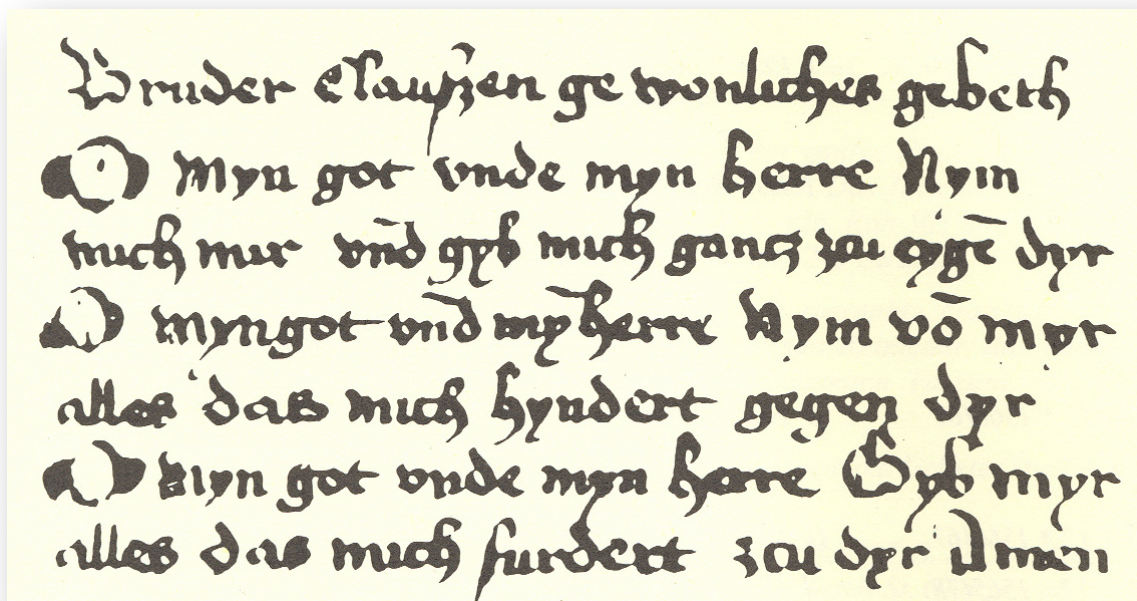 Bruder Clauſzen ge wonliches gebeth
O Myn got vnde myn herre Nym
mich mir vn̄d gyb mich gancz zcu eygē dyr
O myngot vn̄d mȳ herre Nym vō myr
alles das mich hyndert gegen dyr
O Myn got vnde myn herre Gyb myr
alles das mich furdert zcu dyr Amen